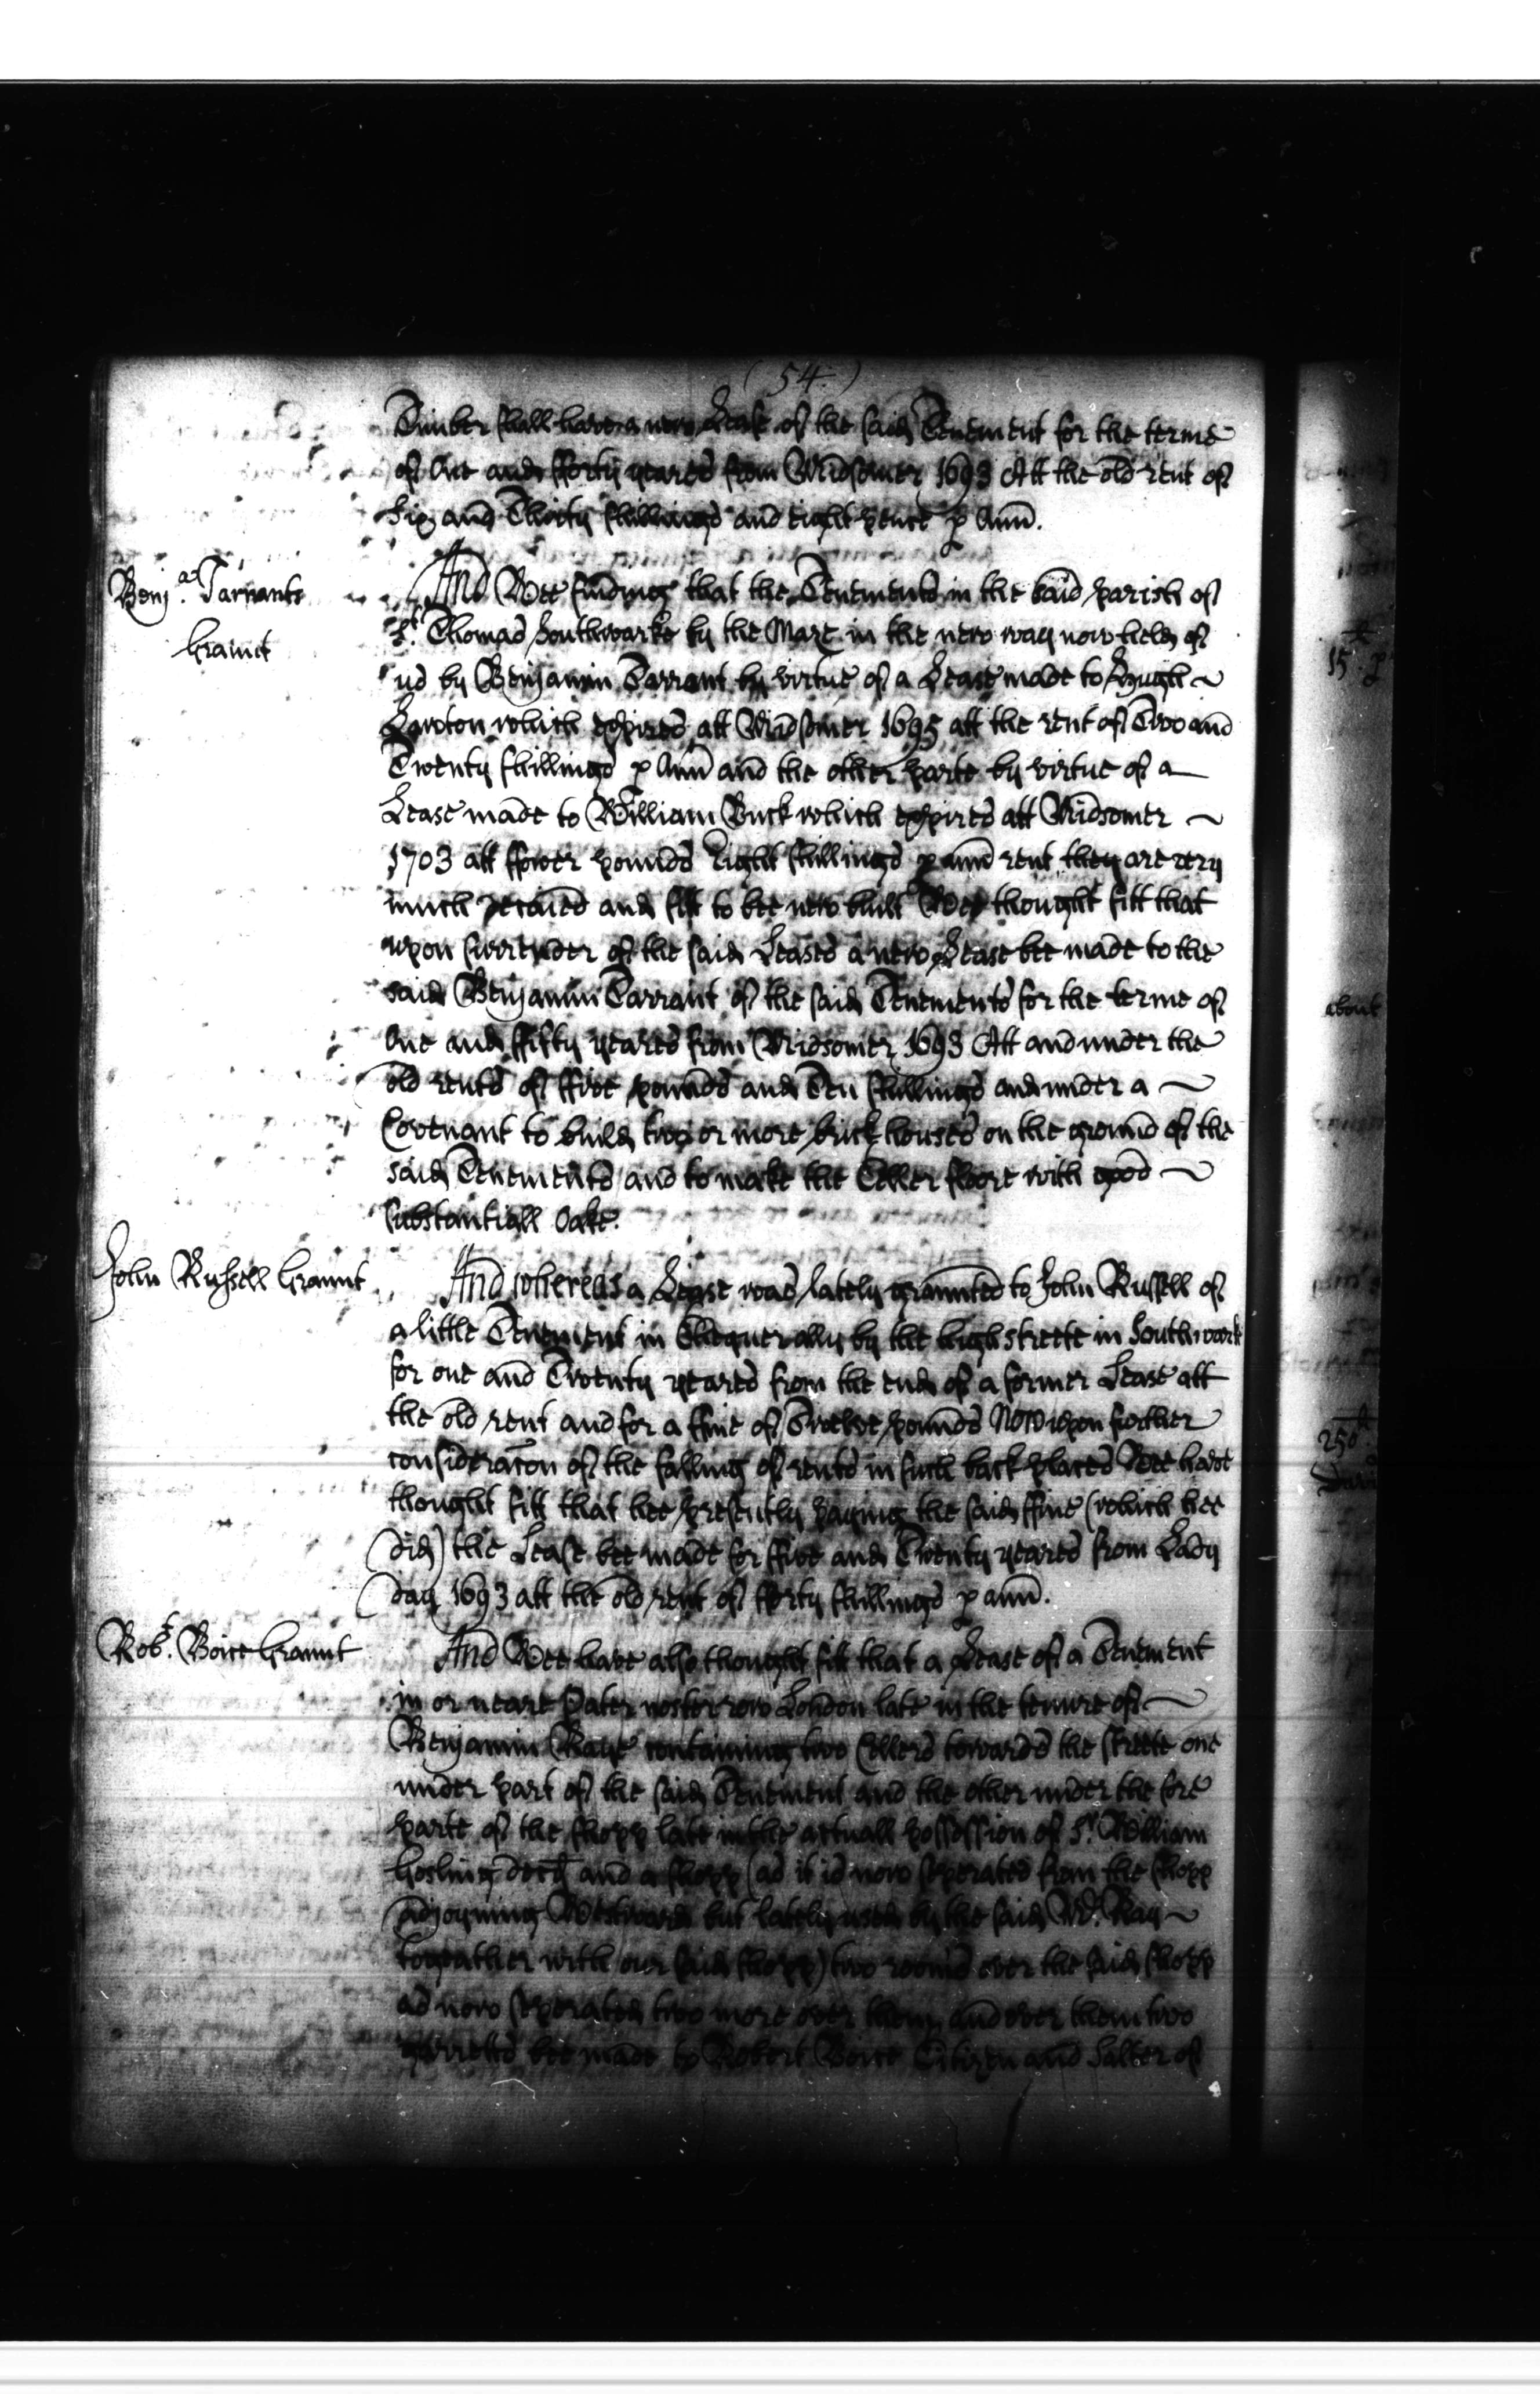 ( 54. )
Timber shall have a new Lease of the said Tenement for the terme
of One and fforty yeares from Midsomer 1693 Att the old rent of
Six and Thirty shillings and eight pence p Ann.
Benj.a Tarrants
Graunt
And Wee finding that the Tenements in the said parish of
St. Thomas Southwarke by the Maze in the new way now held of
us by Benjamin Tarrant by virtue of a Lease made to Hugh
Lawton which expires att Midsomer 1695 att the rent of Two and
Twenty shillings p Ann and the other parte by virtue of a
Lease made to William Buck which expires att Midsomer
1703 att ffower pounds Eight shillings p ann rent they are very
much decaied and fitt to bee new built Wee thought fitt that
upon surrender of the said Leases a new Lease bee made to the
said Benjamin Tarrant of the said Tenements for the terme of
One and ffifty yeares from Midsomer 1693 Att and under the
old rents of ffive pounds and Ten shillings and under a
Covenant to build two or more brick houses on the ground of the
said Tenements and to make the Celler floore with good
substantiall Oake.
John Russell Graunt
And whereas a Lease was lately graunted to John Russell of
a little Tenement in Chequer ally by the high streete in Southwark
for one and Twenty yeares from the end of a former Lease att
the old rent and for a ffine of Twelve pounds Now upon further
consideracon of the falling of rents in such back places Wee have
thought fitt that hee presently paying the said ffine (which hee
did) the Lease bee made for ffive and Twenty yeares from Lady
day 1693 att the old rent of fforty shillings p ann.
Robt. Boice Graunt
And Wee have also thought fitt that a Lease of a Tenement
in or neare Pater noster row London late in the tenure of
Benjamin Raye containing two Cellers towards the streete one
under part of the said Tenement and the other under the fore
parte of the shopp late in the actuall possession of Sr. William
Gosling and a shopp (as it is now seperated from the shopp
adjoyning Westward but lately used by the said Ray
togeather with our said shopp) two roomes over the said shopp
as now seperated two more over them and over them two
garretts bee made to Robert Boice Citizen and Salter of
15 p
about
250